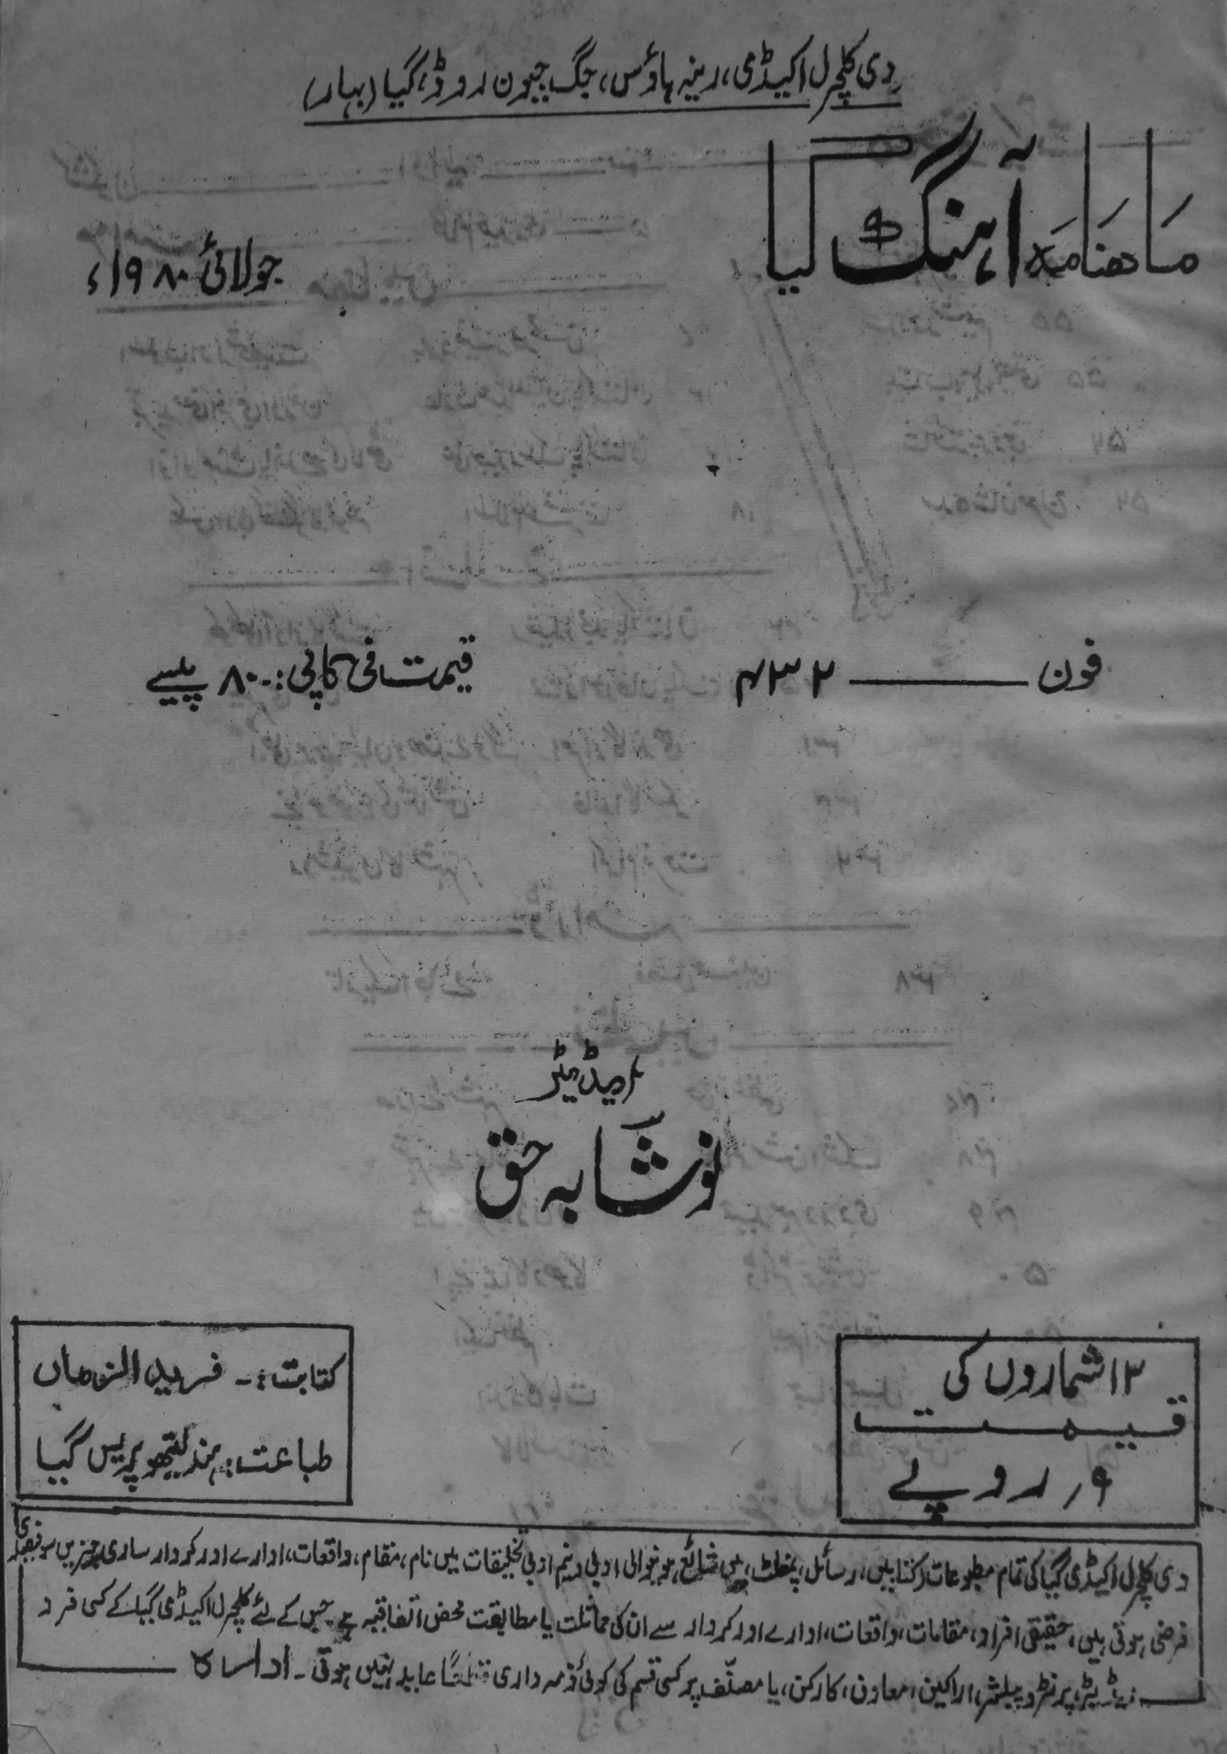 دی کلچرل اکیڈمی، رینہ ہاؤس، جگ جیون روڈ، گیا (بہار)
ماھنامہ آہنگ گیا
جولائی ۱۹۸۰ء
فون ــــــ ۴۳۲
قیمت فی کاپی: ۸۰۔۰ پیسے
ایڈیٹر
نوشابہ حق
کتابت :۔ فرید الزماں
طباعت: ہند لیتھو پریس گیا
۱۲ شماروں کی
قیمت
۹؍ روپے
دی کلچرل اکیڈمی گیا کی تمام مطبوعات (کتابیں، رسائل، پمفلٹ) میں شائع ہونیوالی ادبی و نیم ادبی تخلیقات میں نام، مقام، واقعات، ادارے اور کردار ساری چیزیں سو فیصدی
فرضی ہوتی ہیں، حقیقی افراد، مقامات، واقعات، ادارے اور کردار سے ان کی مماثلت یا مطابقت محض اتفاقیہ ہے جس کے لئے کلچرل اکیڈمی گیا کے کسی فرد
ایڈیٹر، پرنٹر و پبلشر، اراکین، معاون، کارکن، یا مصنّف پر کسی قسم کی کوئی ذمہ داری قطعاً عاید نہیں ہوتی ۔ ادارہ